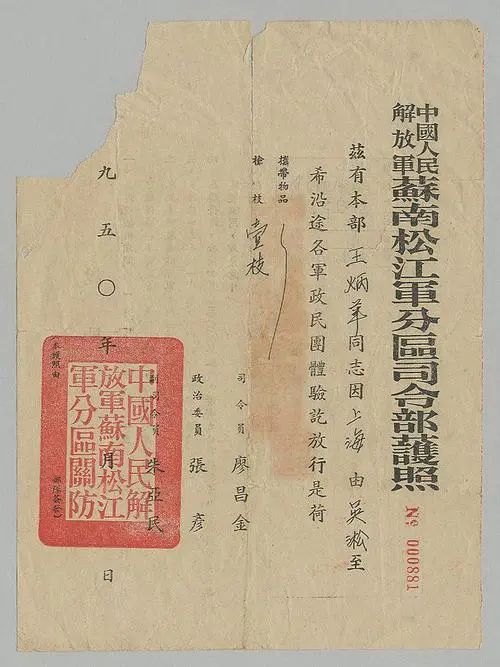 中國人民
解放軍
蘇南松江軍分區司令部護照
№ 000881
茲有本部王炳苹同志因上海由吳淞至
希沿途各軍政民團體驗訖放行是荷
攜帶物品
槍枝壹枝
司令員廖昌金
政治委員張彥
副司令員朱亞民
九五〇年月日
中國人民解
放軍蘇南松江
軍分區關防